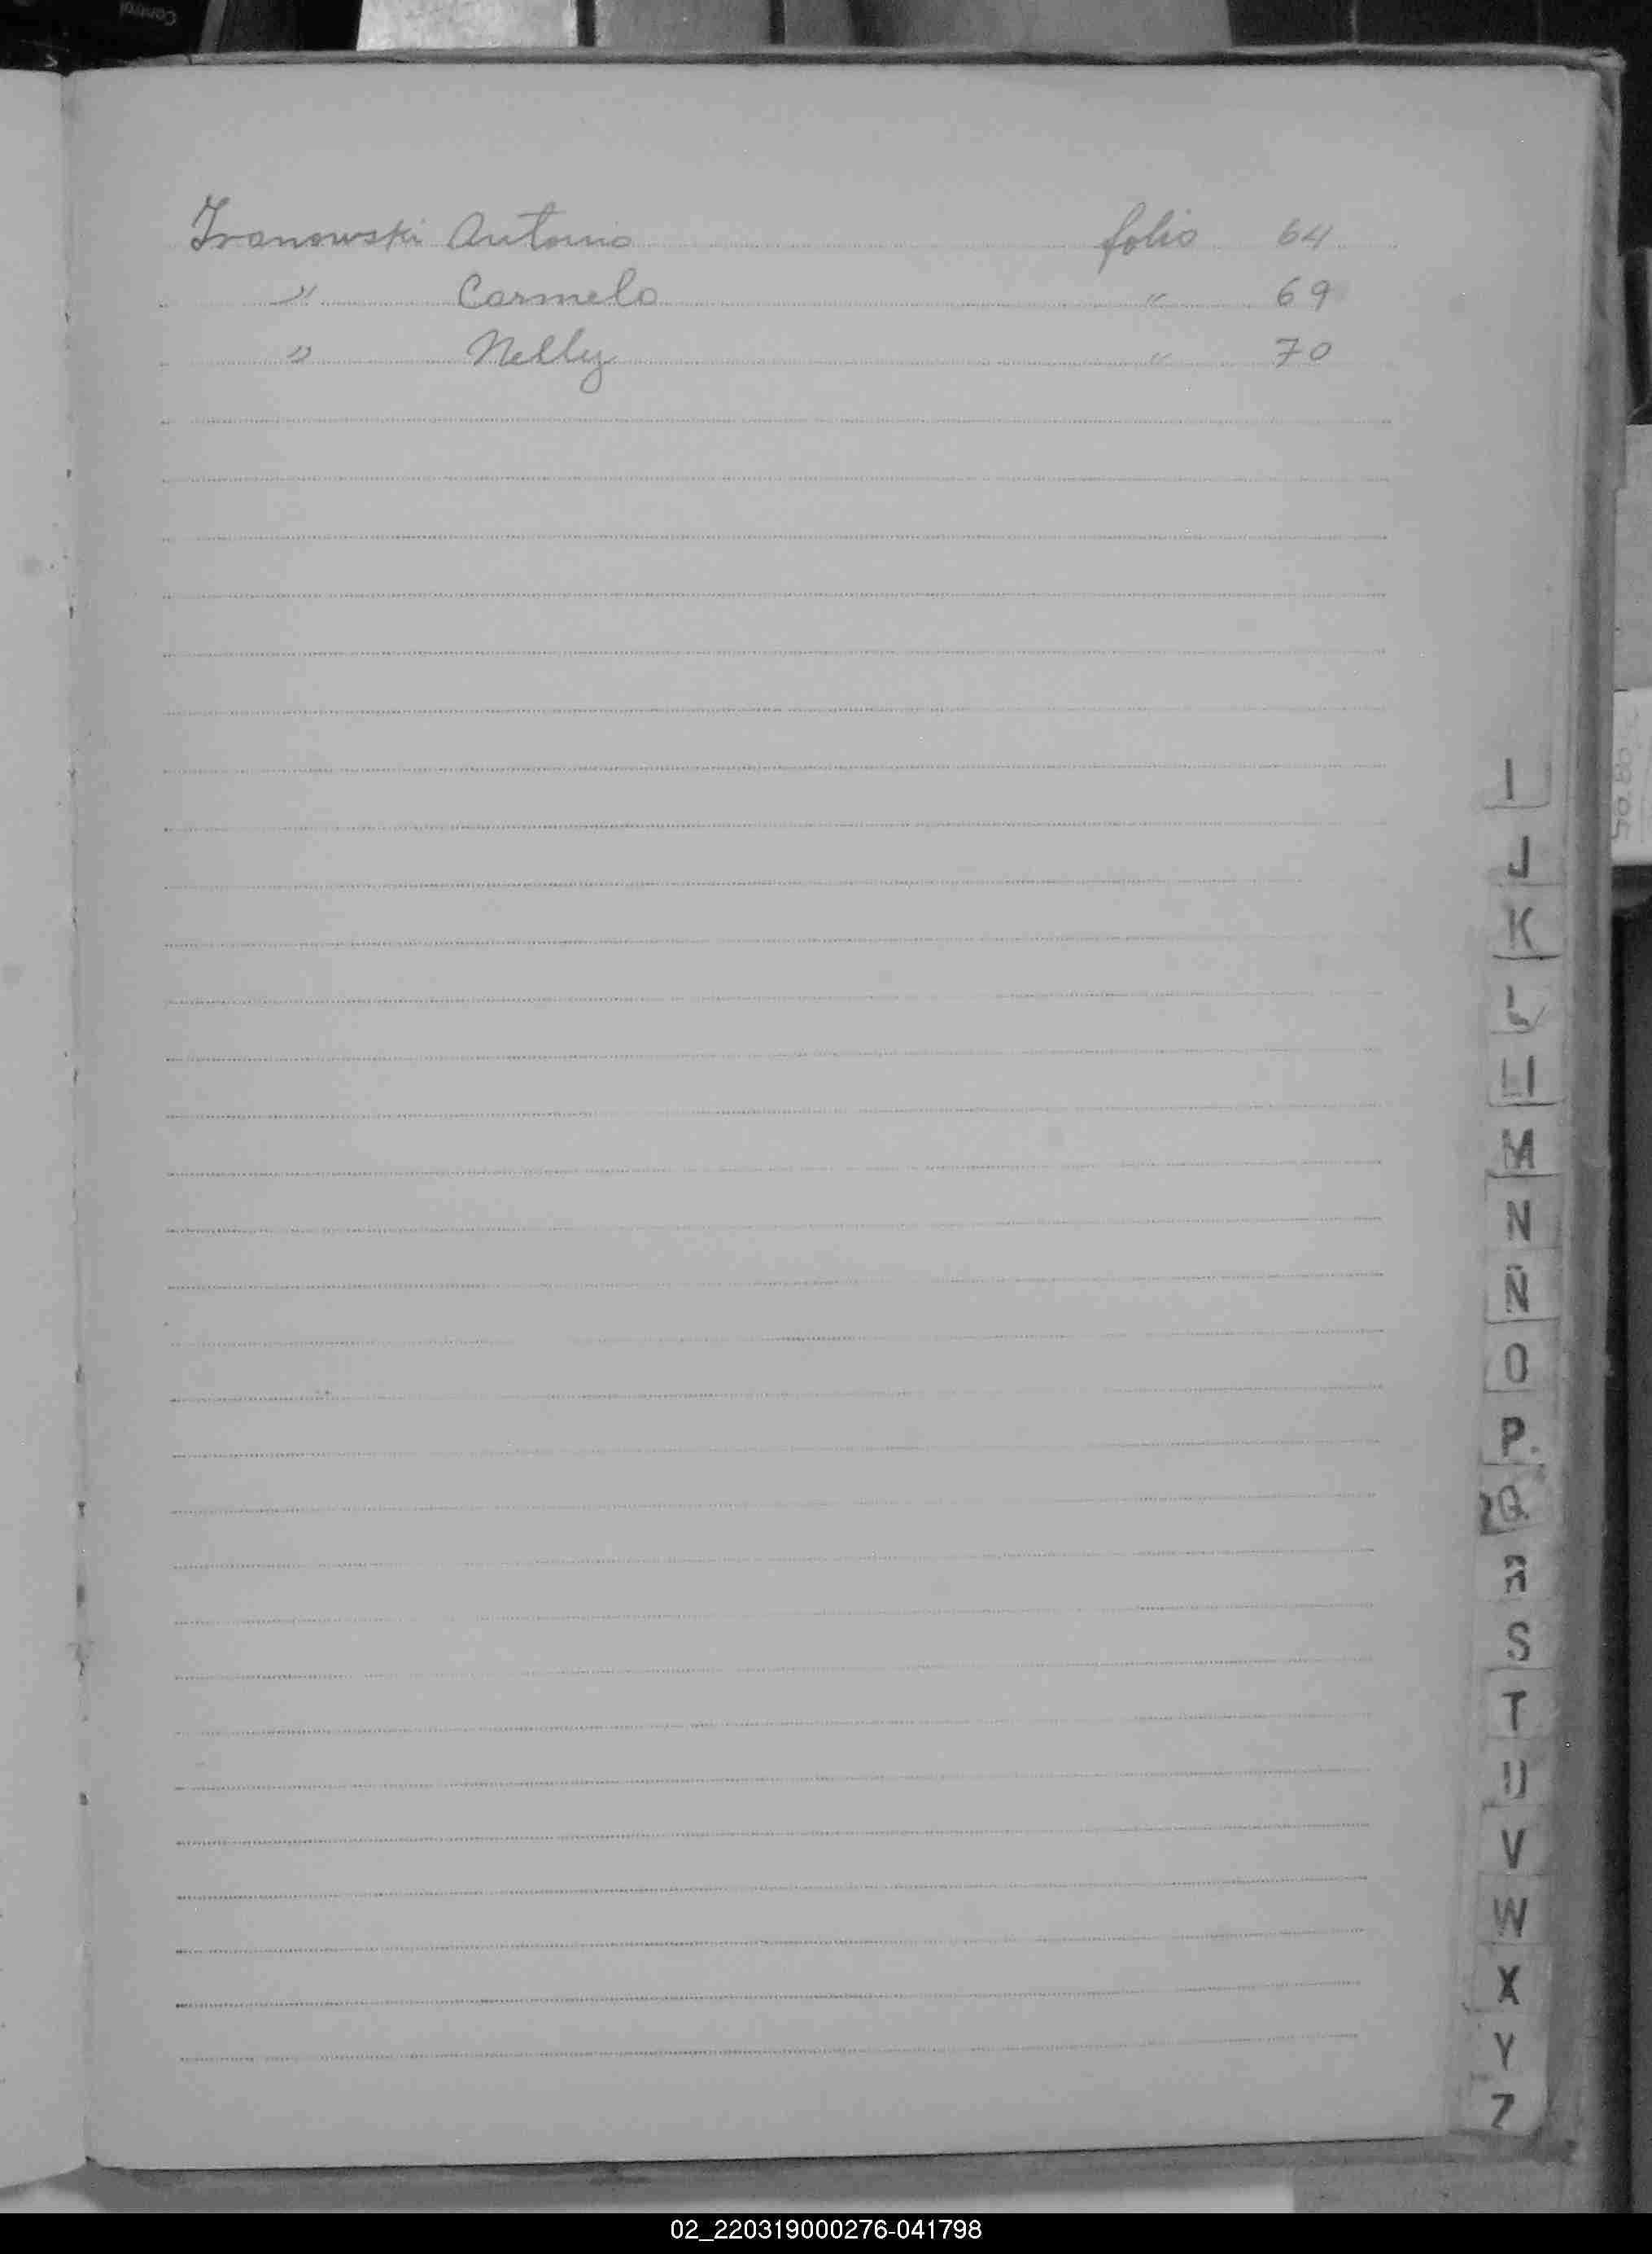 Ivanowski Antonio folio 64
" Carmelo " 69
" Nelly " 70
I
J
K
L
Ll
M
N
Ñ
O
P.
Q.
R
S
T
U
V
W
X
Y
Z
Control
02_220319000276-041798